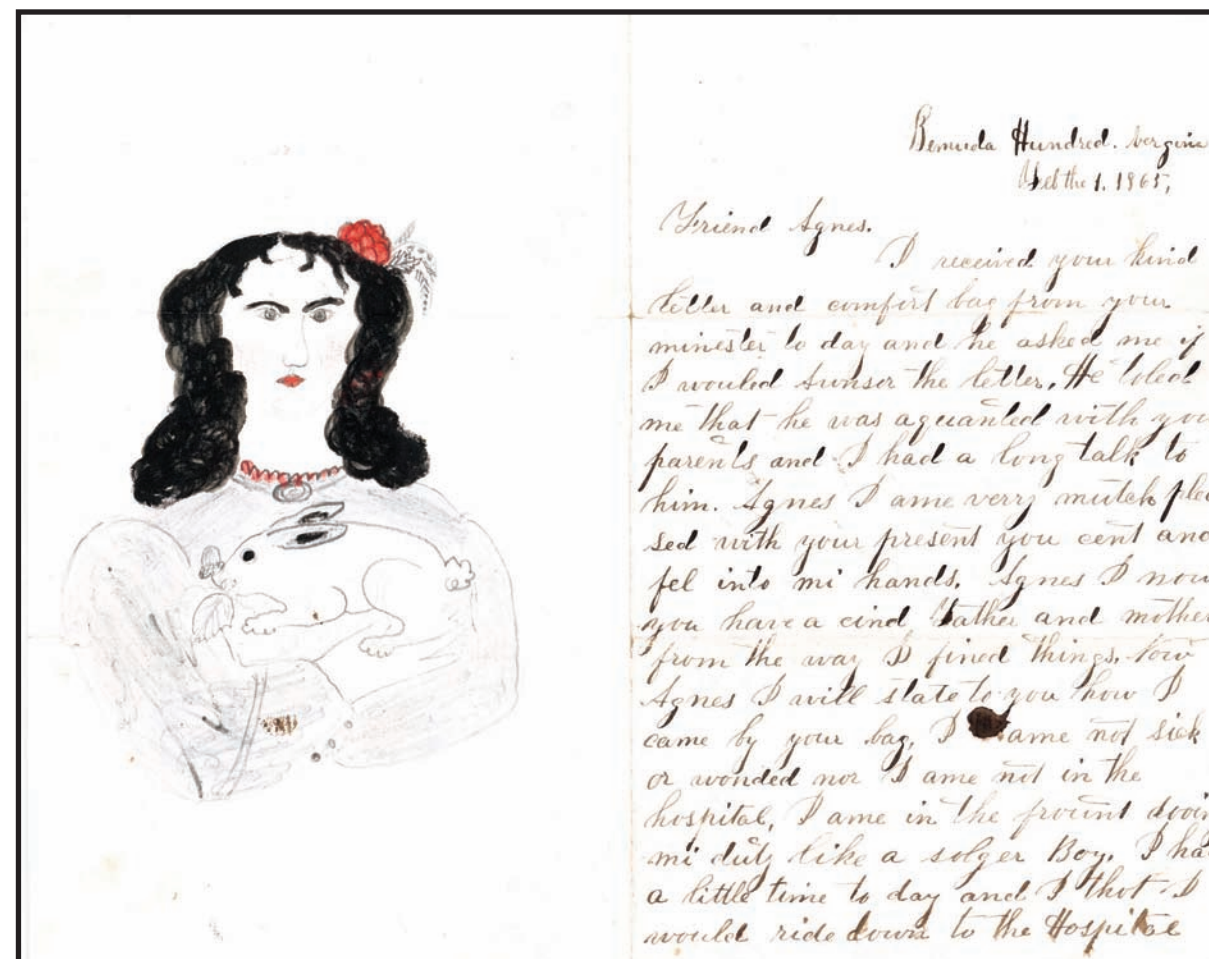 Bemuda Hundred. vergina
Feb the 1. 1865,
Friend Agnes.
I received your kind
letter and comfort bag from your
minester to day and he asked me if
I wouled the letter. He toled
me that he was aquanted with you
parents and I had a long talk to
him. Agnes I ame verry mutch plea
sed with your present you cent and
fel into mi hands. Agnes I now
you have a cind Father and mother
from the way I fined things. Now
Agnes I will state to you how I
came by your bag, I ame not sick
or wonded nor I ame not in the
hospital, I ame in the frount dooin
mi duty like a solger Boy. I ha
a little time to day and I thot I
would ride down to the Hospital